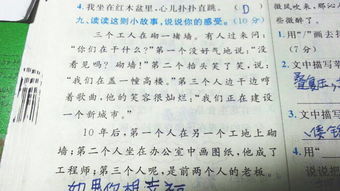 4.我坐在红木盆里,心儿扑扑直跳。(D)
九、读读这则小故事,说说你的感受。(10分)
三个工人在砌一堵墙。有人过来问:
“你们在干什么?”第一个没好气地说:“没
看见吗?砌墙!”第二个抬头笑了笑,说:
“我们在盖一幢高楼。”第三个人边干边哼
着歌曲,他的笑容很灿烂:“我们正在建设
一个新城市。”
10年后,第一个人在另一个工地上砌
墙;第二个人坐在办公室中画图纸,他成了
工程师;第三个人呢,是前两个人的老板。
如果你想幸福
微风吹来,那沁
些微醉了。
用“/”画去括
(7分)
2.文中描写草
3.文中描写
4.用“
说说把